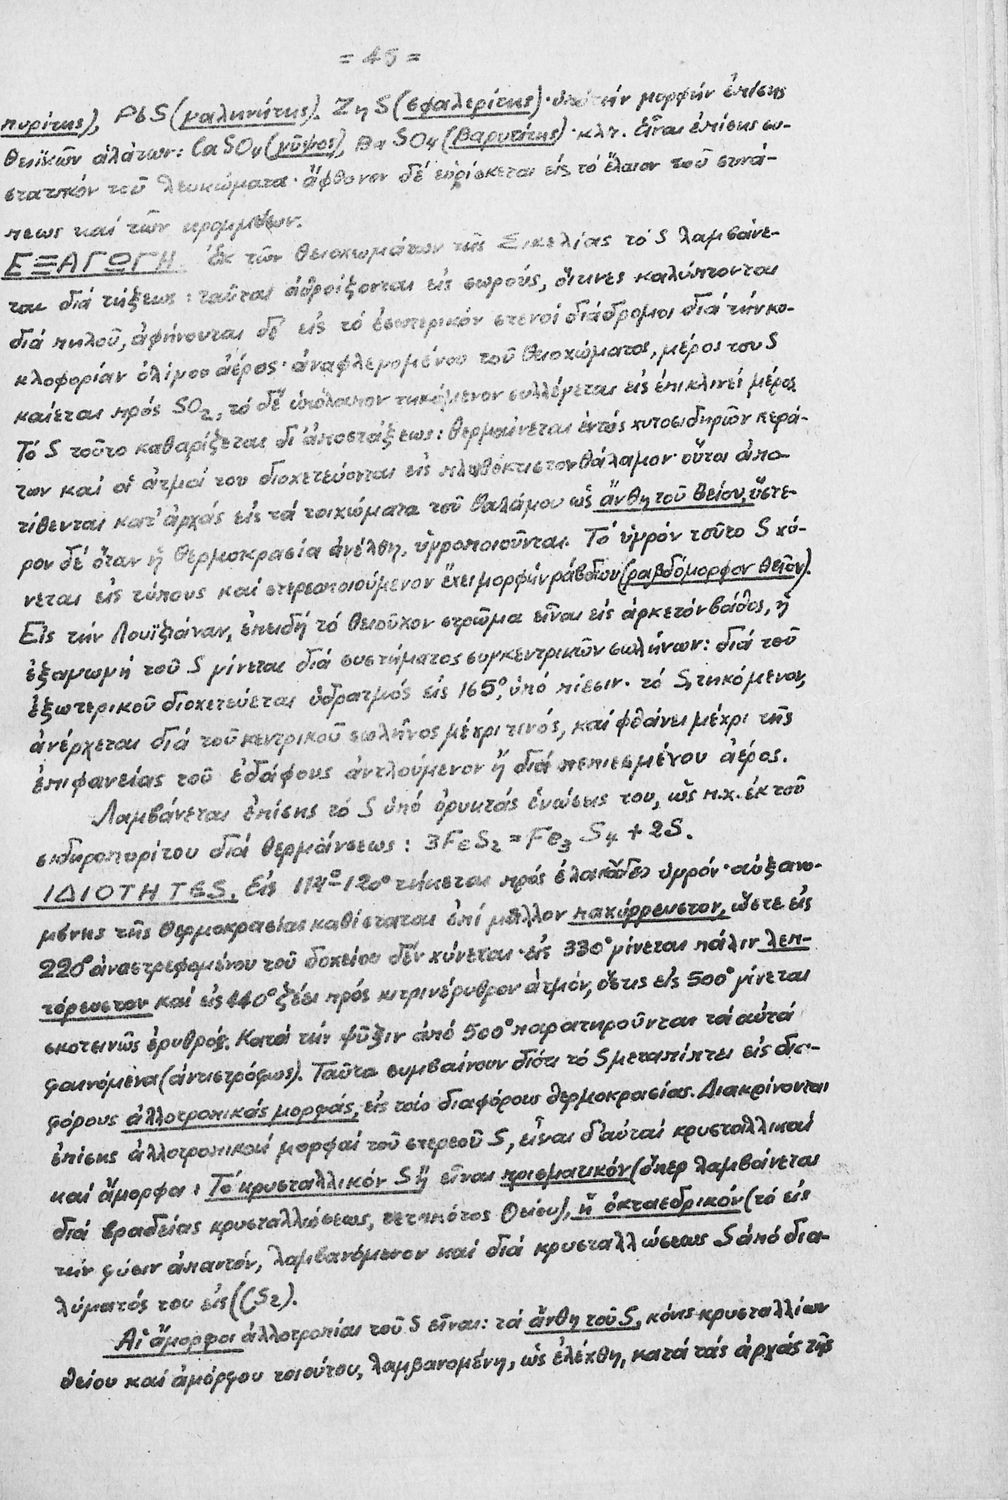 = 45 =
πυρίτης), PbS (γαληνίτης). ZnS (σφαλερίτης)· ὑπό τήν μορφήν ἐπίσης
θειϊκῶν ἁλάτων: CaSO4 (γύψος), BaSO4 (βαρυτίτης)· κλπ. Εἶναι ἐπίσης συ-
στατικόν τοῦ λευκώματα· ἄφθονον δέ εὑρίσκεται εἰς τό ἔλαιον τοῦ σινά-
πεως καί τῶν κρομμύων.
ΕΞΑΓΩΓΗ. Ἐκ τῶν θειοχωμάτων τῆς Σικελίας τό S λαμβάνε-
ται διά τήξεως: ταῦται ἀθροίζονται εἰς σωρούς, οἵτινες καλύπτονται
διά πηλοῦ, ἀφήνονται δέ εἰς τό ἐσωτερικόν στενοί διάδρομοι διά τήν κυ-
κλοφορίαν ὀλίγου ἀέρος· ἀναφλεγομένου τοῦ θειοχώματος, μέρος του S
καίεται πρός SO2, τό δέ ὑπόλοιπον τηκόμενον συλλέγεται εἰς ἐπικλινεί μέρος
Τό S τοῦτο καθαρίζεται δι' ἀποστάξεως: θερμαίνεται ἐντός χυτοσιδηρῶν κερά-
των καί οἱ ἀτμοί του διοχετεύονται εἰς πλινθόκτιστον θάλαμον· οὗτοι ἀπο-
τίθενται κατ' ἀρχάς εἰς τά τοιχώματα τοῦ θαλάμου ὡς ἄνθη τοῦ θείου, ὕστε-
ρον δέ ὅταν ἡ θερμοκρασία ἀνέλθη, ὑγροποιοῦνται. Τό ὑγρόν τοῦτο S χύ-
νεται εἰς τύπους καί στερεοποιούμενον ἔχει μορφήν ράβδου (ραβδόμορφον θεῖον).
Εἰς τήν Λουϊζιάναν, ἐπειδή τό θειοῦχον στρῶμα εἶναι εἰς ἀρκετόν βάθος, ἡ
ἐξαγωγή τοῦ S γίνεται διά συστήματος συγκεντρικῶν σωλήνων: διά τοῦ
ἐξωτερικοῦ διοχετεύεται ὑδρατμός εἰς 165°, ὑπό πίεσιν· τό S, τηκόμενον,
ἀνέρχεται διά τοῦ κεντρικοῦ σωλῆνος μέχρι τινός, καί φθάνει μέχρι τῆς
ἐπιφανείας τοῦ ἐδάφους ἀντλούμενον ἤ διά πεπιεσμένου ἀέρος.
Λαμβάνεται ἐπίσης τό S ὑπό ὀρυκτάς ἑνώσεις του, ὡς π.χ. ἐκ τοῦ
σιδηροπυρίτου διά θερμάνσεως: 3FeS2 = Fe3 S4 + 2S.
ΙΔΙΟΤΗΤΕS. Εἰς 114°-120° τήκεται πρός ἐλαιῶδες ὑγρόν· αὐξανο-
μένης τῆς θερμοκρασίας καθίσταται ἐπί μᾶλλον παχύρρευστον, ὥστε εἰς
220° ἀναστρεφομένου τοῦ δοχείου δέν χύνεται· εἰς 330° γίνεται πάλιν λεπ-
τόρευστον καί εἰς 440° ζέει πρός κιτρινέρυθρον ἀτμόν, ὅστις εἰς 500° γίνεται
σκοτεινῶς ἐρυθρός. Κατά τήν ψῦξιν ἀπό 500° παρατηροῦνται τά αὐτά
φαινόμενα (ἀντιστρόφως). Ταῦτα συμβαίνουν διότι τό S μεταπίπτει εἰς δια-
φόρους ἀλλοτροπικάς μορφάς, εἰς τάς διαφόρους θερμοκρασίας. Διακρίνονται
ἐπίσης ἀλλοτροπικαί μορφαί τοῦ στερεοῦ S, εἶναι δ' αὐταί κρυσταλλικαί
καί ἄμορφοι: Τό κρυσταλλικόν S ἤ εἶναι πρισματικόν (ὅπερ λαμβάνεται
διά βραδείας κρυσταλλώσεως, τετηκότος θείου), ἤ ὀκταεδρικόν (τό εἰς
τήν φύσιν ἀπαντόν, λαμβανόμενον καί διά κρυσταλλώσεως S ἀπό δια-
λύματός του εἰς (CS2).
Αἱ ἄμορφοι ἀλλοτροπίαι τοῦ S εἶναι: τά ἄνθη τοῦ S, κόνις κρυσταλλίων
θείου καί ἀμόρφου τοιούτου, λαμβανομένη, ὡς ἐλέχθη, κατά τάς ἀρχάς τῆς